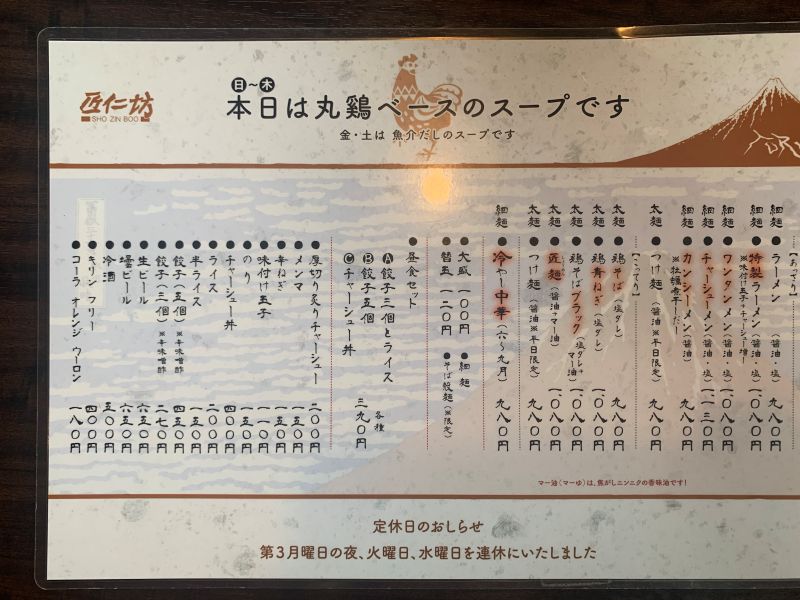 匠仁坊
SHO ZIN BOO
日〜木
本日は丸鶏ベースのスープです
金・土は 魚介だしのスープです
【あっさり】
細麺 ● ラーメン（醤油・塩） 九八〇円
細麺 ● 特製ラーメン（醤油・塩） 一、〇八〇円
※味付け玉子+チャーシュー増
細麺 ● ワンタンメン（醤油・塩） 一、〇八〇円
細麺 ● チャーシューメン（醤油・塩） 一、一三〇円
細麺 ● カンシーメン（醤油） 九八〇円
※牡蠣煮干しだし
太麺 ● つけ麺（醤油※平日限定） 九八〇円
【こってり】
太麺 ● 鶏そば（塩ダレ） 九八〇円
太麺 ● 鶏青ねぎ（塩ダレ） 一、〇八〇円
太麺 ● 鶏そばブラック（塩ダレ+マー油） 一、〇八〇円
太麺 ● 匠麺（醤油+マー油） 一、〇八〇円
太麺 ● つけ麺（醤油※平日限定） 九八〇円
細麺 ● 冷やし中華（六〜九月） 九八〇円
● 大盛 一〇〇円 ● 細麺
● 替玉 一二〇円 ● そば殻麺（※限定）
● 昼食セット
Ⓐ 餃子三個とライス
Ⓑ 餃子五個
Ⓒ チャーシュー丼
各種 三九〇円
● 厚切り炙りチャーシュー 二〇〇円
● メンマ 一五〇円
● 辛ねぎ 一五〇円
● 味付け玉子 一一〇円
● のり 一五〇円
● チャーシュー丼 四〇〇円
● ライス 二〇〇円
● 半ライス 一五〇円
● 餃子（五個）※辛味噌酢 四五〇円
● 餃子（三個）※辛味噌酢 二七〇円
● 生ビール 六五〇円
● 壜ビール 六五〇円
● 冷酒 五〇〇円
● キリン フリー 四〇〇円
● コーラ オレンジ ウーロン 一八〇円
マー油（マーゆ）は、焦がしニンニクの香味油です！
定休日のおしらせ
第3月曜日の夜、火曜日、水曜日を連休にいたしました